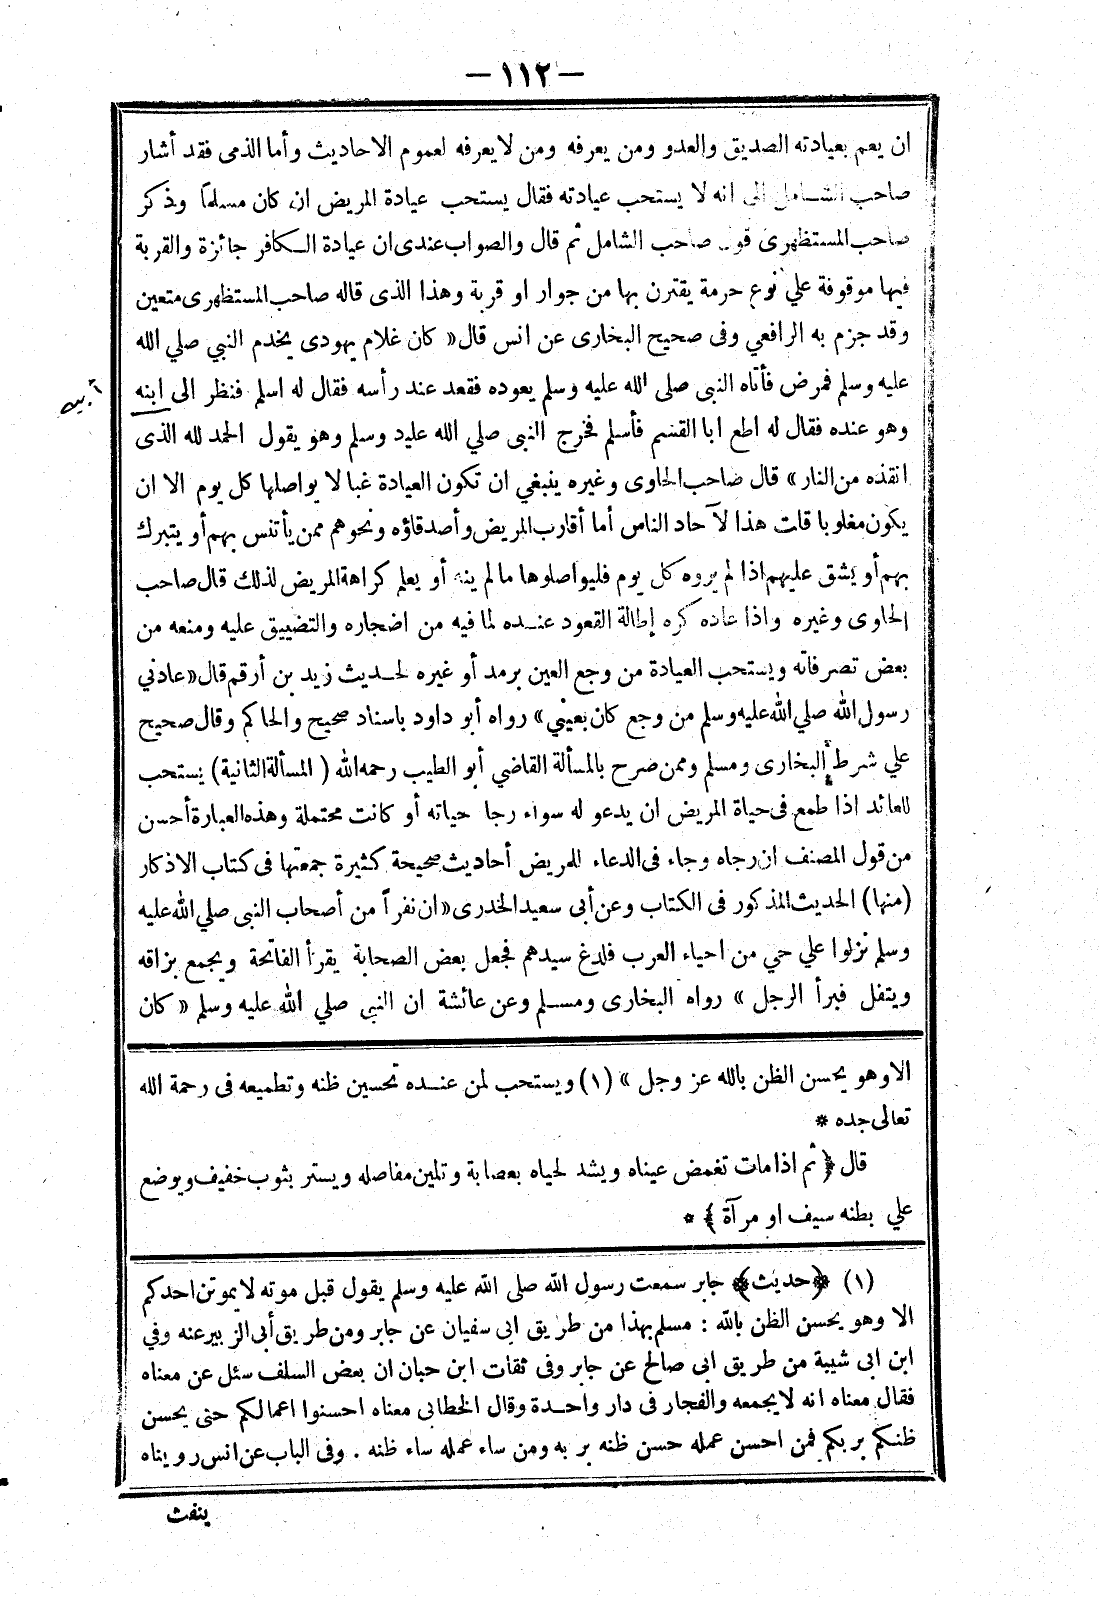 — ١١٢ —
ان يعم بعيادته الصديق والعدو ومن يعرفه ومن لايعرفه لعموم الاحاديث وأما الذمى فقد أشار
صاحب الشامل الى انه لا يستحب عيادته فقال يستحب عيادة المريض ان كان مسلماً وذكر
صاحب المستظهرى قول صاحب الشامل ثم قال والصواب عندى ان عيادة الكافر جائزة والقربة
فيها موقوفة علي نوع حرمة يقترن بها من جوار او قربة وهذا الذى قاله صاحب المستظهرى متعين
وقد جزم به الرافعي وفى صحيح البخارى عن انس قال « كان غلام يهودى يخدم النبي صلي الله
عليه وسلم فمرض فأتاه النبى صلى الله عليه وسلم يعوده فقعد عند رأسه فقال له اسلم فنظر الى ابنه
أبيه
وهو عنده فقال له اطع ابا القسم فأسلم فخرج النبى صلي الله عليه وسلم وهو يقول الحمد لله الذى
انقذه من النار » قال صاحب الحاوى وغيره ينبغي ان تكون العيادة غبا لا يواصلها كل يوم الا ان
يكون مغلوبا قلت هذا لآحاد الناس أما أقارب المريض وأصدقاؤه ونحوهم ممن يأتنس بهم أو يتبرك
بهم أو يشق عليهم اذا لم يروه كل يوم فليواصلوها ما لم ينه أو يعلم كراهة المريض لذلك قال صاحب
الحاوى وغيره واذا عاده كره إطالة القعود عنده لما فيه من اضجاره والتضييق عليه ومنعه من
بعض تصرفاته ويستحب العيادة من وجع العين برمد أو غيره لحديث زيد بن أرقم قال « عادني
رسول الله صلي الله عليه وسلم من وجع كان بعيني » رواه أبو داود باسناد صحيح والحاكم وقال صحيح
علي شرط البخارى ومسلم وممن صرح بالمسألة القاضي أبو الطيب رحمه الله ( المسألة الثانية ) يستحب
للعائد اذا طمع فى حياة المريض ان يدعو له سواء رجا حياته أو كانت محتملة وهذه العبارة أحسن
من قول المصنف ان رجاه وجاء فى الدعاء للمريض أحاديث صحيحة كثيرة جمعتها فى كتاب الاذكار
(منها) الحديث المذكور فى الكتاب وعن أبى سعيد الخدرى « ان نفراً من أصحاب النبى صلي الله عليه
وسلم نزلوا علي حي من احياء العرب فلدغ سيدهم فجعل بعض الصحابة يقرأ الفاتحة ويجمع بزاقه
ويتفل فبرأ الرجل » رواه البخارى ومسلم وعن عائشة ان النبى صلي الله عليه وسلم « كان
الا وهو يحسن الظن بالله عز وجل » (١) ويستحب لمن عنده تحسين ظنه وتطميعه فى رحمة الله
تعالى جده *
قال ﴿ ثم اذا مات تغمض عيناه ويشد لحياه بعصابة وتلين مفاصله ويستر بثوب خفيف ويوضع
علي بطنه سيف او مرآة ﴾ *
(١) ﴿حديث﴾ جابر سمعت رسول الله صلى الله عليه وسلم يقول قبل موته لا يموتن احدكم
الا وهو يحسن الظن بالله : مسلم بهذا من طريق ابى سفيان عن جابر ومن طريق أبى الزبير عنه وفي
ابن ابى شيبة من طريق ابى صالح عن جابر وفى ثقات ابن حبان ان بعض السلف سئل عن معناه
فقال معناه انه لا يجمعه والفجار فى دار واحدة وقال الخطابى معناه احسنوا اعمالكم حتى يحسن
ظنكم بربكم فمن احسن عمله حسن ظنه بربه ومن ساء عمله ساء ظنه . وفى الباب عن انس رويناه
ينفث